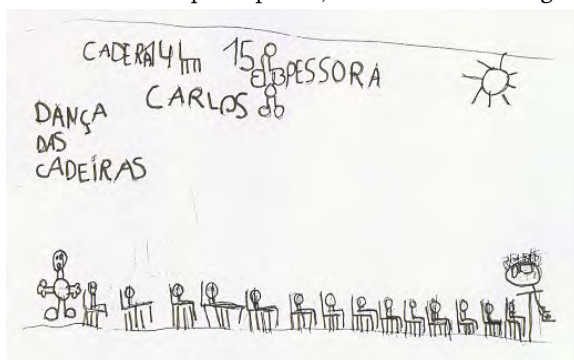 CADERA 14 15 PESSORA
CARLOS
DANÇA
DAS
CADEIRAS